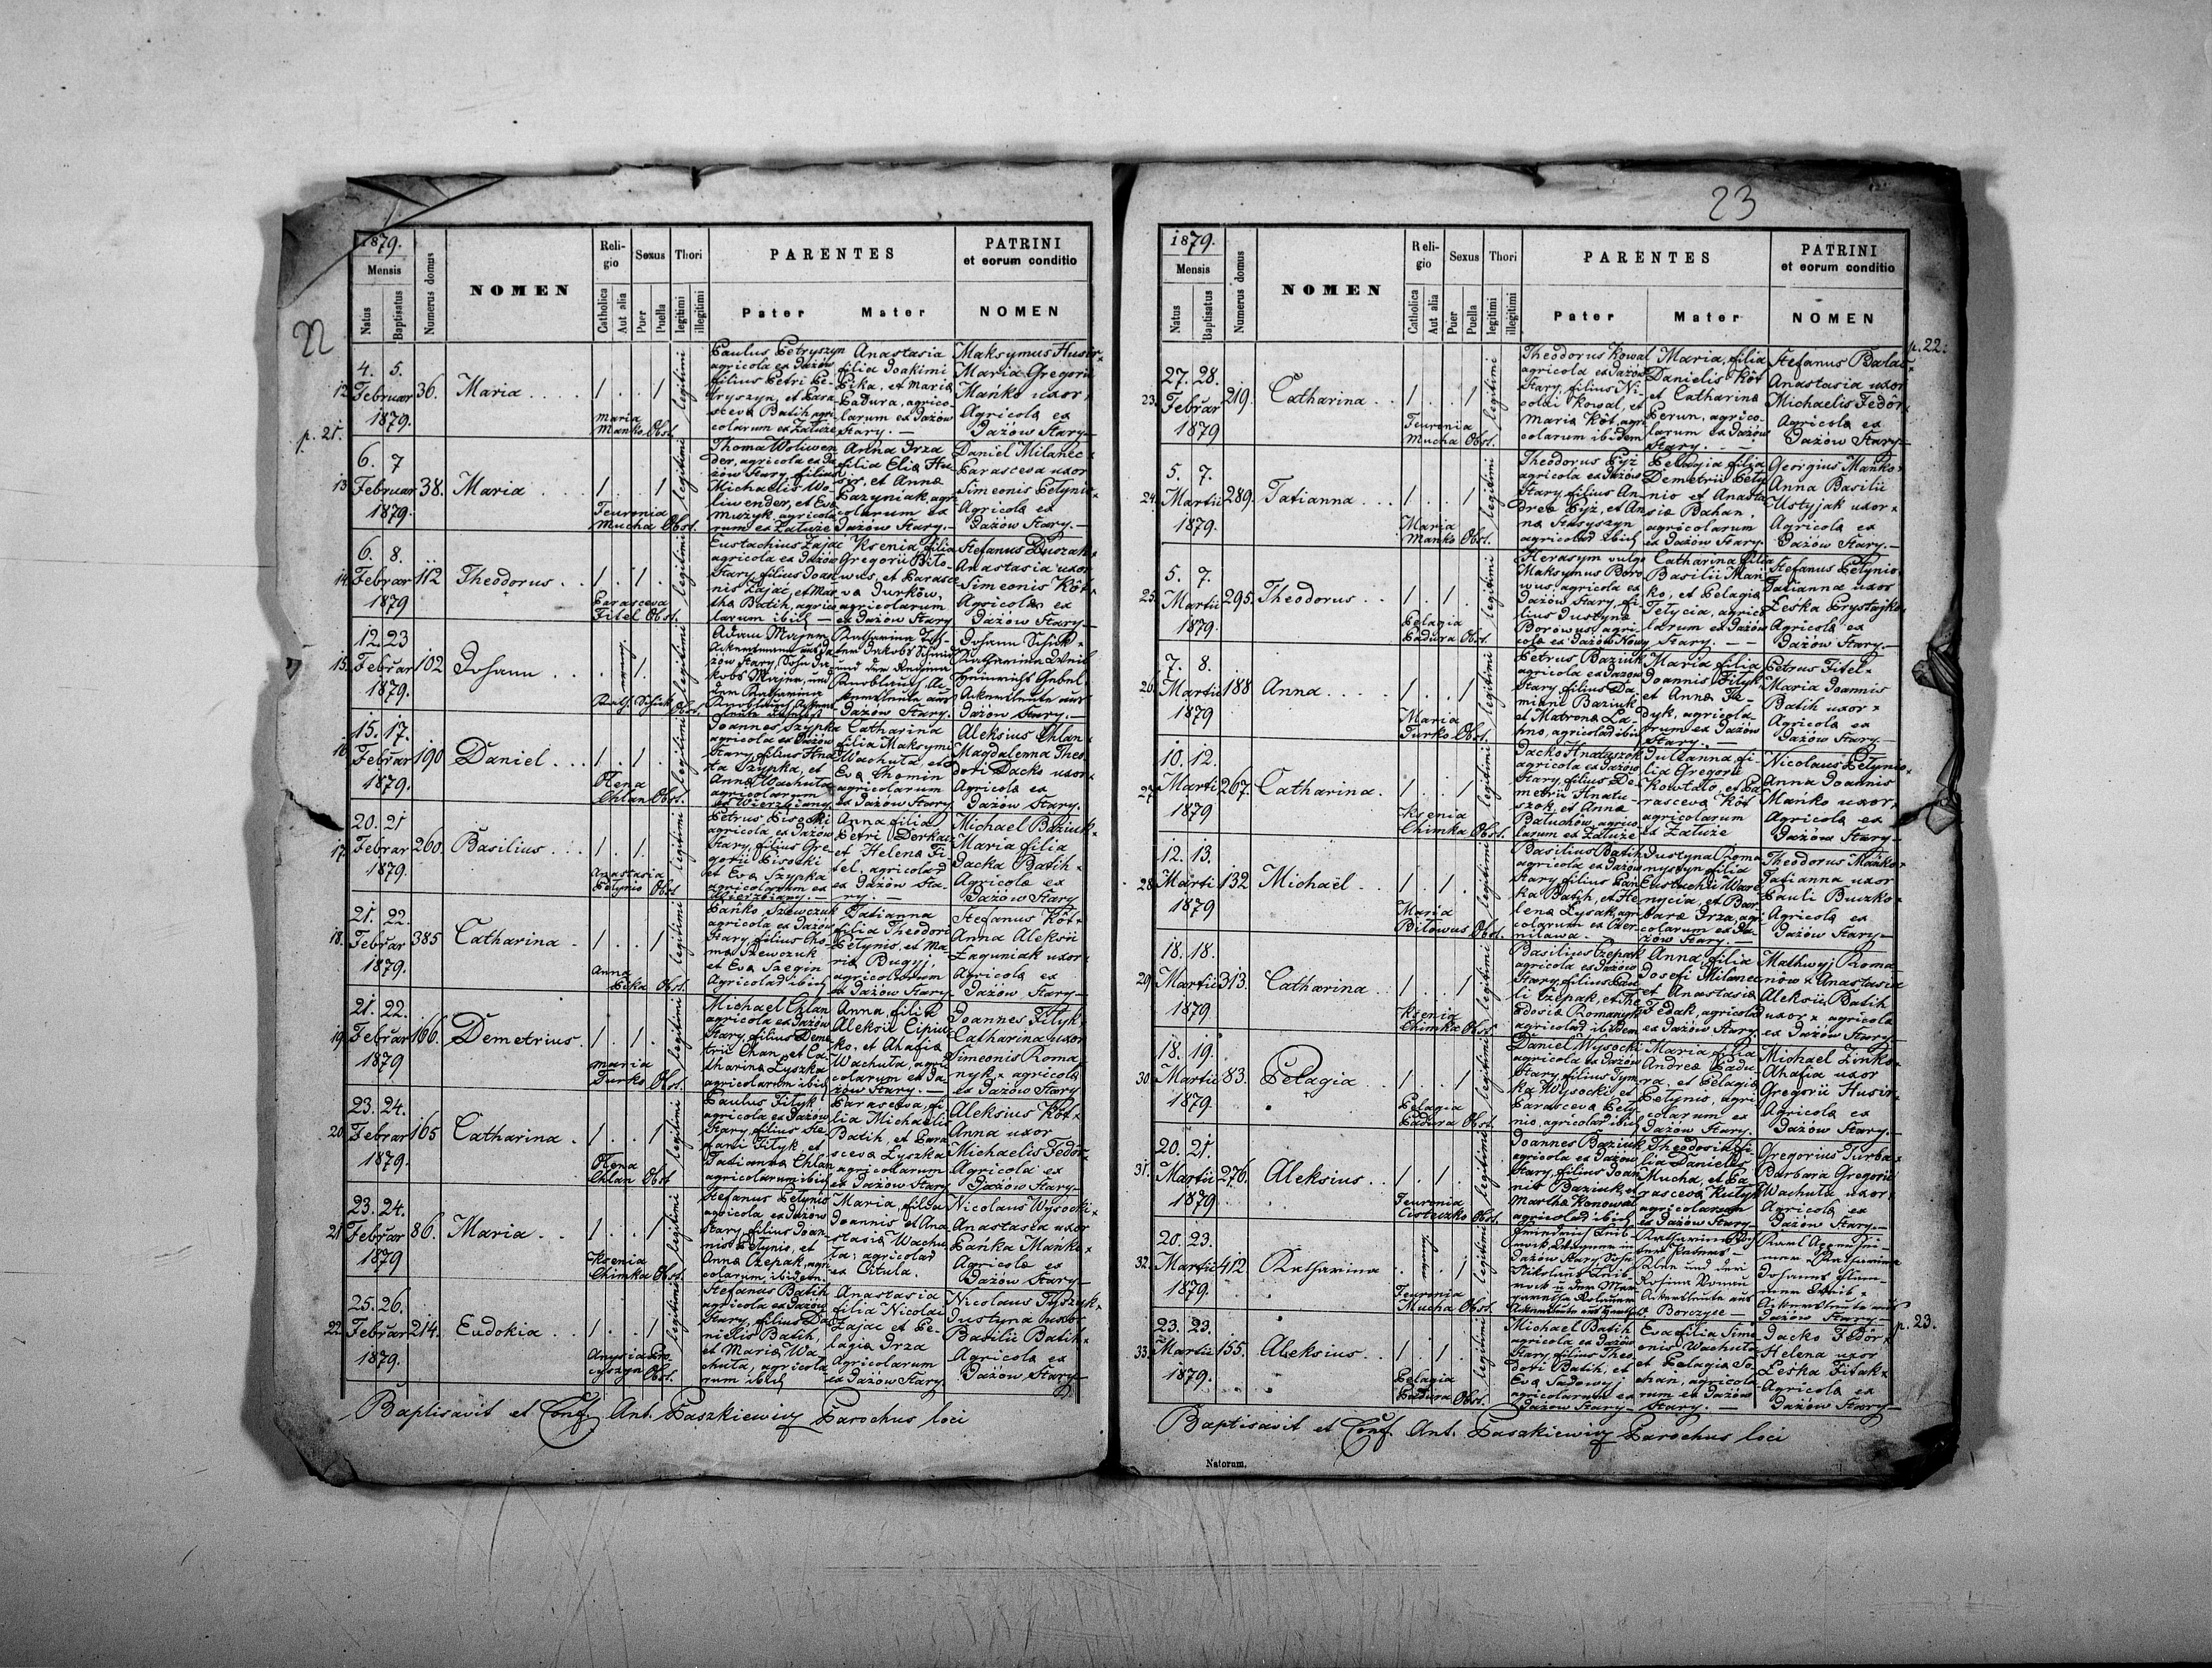 22
1879.
Mensis
Natus
Baptisatus
Numerus domus
NOMEN
Religio
Catholica
Aut alia
Sexus
Puer
Puella
Thori
legitimi
illegitimi
PARENTES
Pater
Mater
PATRINI
et eorum conditio
NOMEN
p. 21.
12. 4. 5. Februar 1879. 36. Maria
Maria Mańko Obst.
legitimi
Paulus Petryszyn
agricola ex Jażów
filius Petri Pe-
tryszyn, et Para-
sceva Batih agri
colarum ex Załuże
Anastasia
filia Joakimi
Pika, et Maria
Padura, agrico-
larum ex Jażów
Stary.
Maksymus Husir
Maria Gregorii
Mańko uxor
Agricola ex
Jażów Stary
13. 6. 7 Februar 1879. 38. Maria
Feuronia Mucha Obst.
legitimi
Michaelis Wo-
liwender, et Eva
Muzyk, agricola
rum ex Załuże
Anna Irza
filia Elia Hu-
syr, et Anna
Pazyniak, agri
colarum ex
Jażów Stary.
Daniel Milanec
Parasceva uxor
Simeonis Petynio
Agricola ex
Jażów Stary.
14. 6. 8. Februar 1879 112 Theodorus
Parasceva Fitel Obst.
legitimi
Eustachius Zajac
agricola ex Jażów
Stary, filius Joan
nis Zajac, et Mar
tha Batih, agrico
larum ibid
Ksenia filia
Gregorii Biło-
wus, et Parasce
va Jurków,
agricolarum
ex Jażów Stary
Stefanus Duszak
Anastasia uxor
Simeonis Kôt
Agricola ex
Jażów Stary
15. 12. 23 Februar 1879. 102 Johann
Kath. Schick Obst.
legitimi
Adam Majer
Jażów Stary.
Johann Schick
Heinrichs Gebel
Ackersleute aus
Jażów Stary.
16. 15. 17. Februar 1879. 190 Daniel
Olena Chlan Obst.
legitimi
Joannes Szypka
agricola ex Jażów
Stary, filius Hna
ta Szypka, et
Anna Wachuta
agricolarum
ex Wierzbiany
Catharina
filia Maksymi
Wachuta, et
Eva Chomin
agricolarum
ex Jażów Stary
Aleksius Chlan
Magdalenna Theo
dori Dacko uxor
Agricola ex
Jażów Stary.
17. 20. 21 Februar 1879. 260. Basilius
Anastasia Petynio Obst
legitimi
Petrus Lisocki
agricola ex Jażów
Stary, filius Gre-
gorii Lisocki
et Eva Szypka
agricolarum ex
Wierzbiany.
Anna filia
Petri Derkacz
et Helena Fi-
tel, agricolar
ex Jażów Sta-
ry.
Michael Baziuk
Maria filia
Jacka Batih
Agricola ex
Jażów Stary
18. 21. 22. Februar 1879. 385 Catharina
Anna Pika Obst.
legitimi
Pańko Szewczuk
agricola ex Jażów
Stary, filius Tho-
ma Szewczuk
et Eva Szegin
Agricolar ibid
Tatianna
filia Theodori
Petynio, et Ma-
ria Bugyj,
agricolarum
ex Jażów Stary
Stefanus Kôt
Anna Aleksii
Łaguniak uxor
Agricola ex
Jażów Stary
19. 21. 22. Februar 1879 166. Demetrius
Maria Turko Obst.
legitimi
Michael Chlan
agricola ex Jażów
Stary, filius Deme
trii Chlan, et Ca-
tharina Łyszka
agricolarum ibid
Anna, filia
Aleksii Cipiw
ko, et Ahafia
Wachuta, agri
colarum ex Ja-
żów Stary.
Joannes Fityk
Catharina uxor
Simeonis Roma
nyk agricola
ex Jażów Stary
20. 23. 24. Februar 1879. 165 Catharina
Olena Chlan Obst
legitimi
Paulus Fityk
agricola ex Jażów
Stary, filius Ste
fani Fityk, et
Tatianna Chlan
agricolarum ibid
Parasceva, fi-
lia Michaelis
Batih, et Para
sceva Łyszka
agricolarum
ex Jażów Stary
Aleksius Kôt
Anna uxor
Michaelis Fedôr
Agricola ex
Jażów Stary
21. 23. 24. Februar 1879 86. Maria
Ksenia Chimka Obst.
legitimi
Stefanus Petynio
agricola ex Jażów
Stary, filius Joan
nis Petynio, et
Anna Czepak, agri
colarum ibidem.
Maria, filia
Joannis et Ana
stasia Wachu
ta, agricolar
ex Cetula.
Nicolaus Wysocki
Anastasia uxor
Pańka Mańko
Agricola ex
Jażów Stary
22. 25. 26. Februar 1879. 214. Eudokia
Obst.
legitimi
Stefanus Batih
agricola ex Jażów
Stary, filius Da
nielis Batih,
et Maria Wa-
chuta, agricola
rum ibid
Anastasia
filia Nicolai
Zajac et Pe-
lagia Irza
Agricolarum
ex Jażów Stary
Nicolaus Tyszyk
Justyna uxor
Basilii Batih
Agricola ex
Jażów Stary
Baptisavit et Conf. Ant. Paszkiewicz Parochus loci
23
1879.
Mensis
Natus
Baptisatus
Numerus domus
NOMEN
Religio
Catholica
Aut alia
Sexus
Puer
Puella
Thori
legitimi
illegitimi
PARENTES
Pater
Mater
PATRINI
et eorum conditio
NOMEN
p. 22.
23. 27. 28. Februar 1879 219. Catharina
Feuronia Mucha Obst.
legitimi
Theodorus Kowal
agricola ex Jażów
Stary, filius Ni-
colai Kowal, et
Maria Kôt, agri
colarum ibidem
Maria, filia
Danielis Kôt
et Catharina
Perun, agrico-
larum ex Jażów
Stary.
Stefanus Bala
Anastasia uxor
Michaelis Fedôr
Agricola ex
Jażów Stary
24. 5. 7. Martii 1879. 289. Tatianna
Maria Mańko Obst.
legitimi
Theodorus Pyż
agricola ex Jażów
Stary, filius An-
drea Pyż, et An-
na Stasyszyn
agricolar ibid
Pelagia filia
Demetrii Pety
nio et Anasta
sia Bahan,
agricolarum
ex Jażów Stary.
Georgius Mańko
Anna Basilii
Ustyjak uxor
Agricola ex
Jażów Stary.
25. 5. 7. Martii 1879. 295. Theodorus
Pelagia Padura Obst.
legitimi
Herasym vulgo
Maksymus Boro
wus, agricola ex
Jażów Stary, fi-
lius Justyna
Borowus, agri-
cola ex Jażów Nowy
Catharina filia
Basilii Mań
ko, et Pelagia
Tetycia, agrico
larum ex Jażów
Stary.
Stefanus Petynio
Tatianna uxor
Leśka Prystajko
Agricola ex
Jażów Stary.
26. 7. 8. Martii 1879 188 Anna
Maria Turko Obst.
legitimi
Petrus Baziuk
agricola ex Jażów
Stary filius Da-
miani Baziuk
et Matrona La-
hno, agricolar ibid
Maria filia
Joannis Fityk
et Anna Fe-
dyk, agricola-
rum ex Jażów
Stary.
Petrus Fitel
Maria Joannis
Batih uxor
Agricola ex
Jażów Stary.
27. 10. 12. Martii 1879 267. Catharina
Ksenia Chimka Obst.
legitimi
Jacko Hnatyszok
agricola ex Jażów
Stary, filius De-
metrii Hnatu-
szok, et Anna
Batuchów, agrico
larum ex Załuże
Julianna fi-
lia Gregorii
Kowtało, et Pa
rasceva Kôt
agricolarum
ex Załuże
Nicolaus Petynio
Anna Joannis
Mańko uxor
Agricola ex
Jażów Stary
28. 12. 13. Martii 1879 132 Michaël
Maria Biłowus Obst.
legitimi
Basilius Batih
agricola ex Jażów
Stary, filius Pań
ka Batih, et He
lena Łysak, agri
colarum ex Czer
nilawa.
Justyna Roma
nyszyn filia
Eustachii Ware
nycia, et Bar
bara Irza, agri
colarum ex Ja-
żów Stary.
Theodorus Mańko
Tatianna uxor
Pauli Buczko
Agricola ex
Jażów Stary
29. 18. 18. Martii 1879 313. Catharina
Ksenia Chimka Obst.
legitimi
Basilius Czepak
agricola ex Jażów
Stary, filius Pau
li Czepak, et The
odosia Romanyk
agricolar ibidem
Anna, filia
Josefi Milanec
et Anastasia
Fedak, agricolar
ex Jażów Stary
Mathwyj Roma-
nów Anastasia
Aleksii Batih
uxor agricola
ex Jażów Stary.
30. 18. 19. Martii 1879 83. Pelagia
Pelagia Padura Obst.
legitimi
Daniel Wysocki
agricola ex Jażów
Stary, filius Tym
ka Wysocki, et
Parasceva Pety-
nio, agricolar ibid
Maria filia
Andrea Padu
ra, et Pelagia
Petynio, agri
colarum ex
Jażów Stary.
Michael Zinko
Ahafia uxor
Gregorii Husir
Agricola ex
Jażów Stary.
31. 20. 21. Martii 1879 276. Aleksius
Feuronia Cisteczko Obst.
legitimi
Joannes Baziuk
agricola ex Jażów
Stary, filius Joan
nis Baziuk, et
Martha Konowal
agricolar ibid
Theodosia fi-
lia Danielis
Mucha, et Pa
rasceva Kutyk
agricolarum
ex Jażów Stary
Gregorius Turba
Barbara Gregorii
Wachuta uxor
Agricola ex
Jażów Stary.
32. 20. 23. Martii 1879. 412 Katharina
Feuronia Mucha Obst.
legitimi
Jażów Stary.
33. 23. 23. Martii 1879. 155. Aleksius
Pelagia Padura Obst.
legitimi
Michael Batih
agricola ex Jażów
Stary, filius Theo
dori Batih, et
Eva Sadowyj
agricolarum ex
Jażów Stary
Eva filia Sime
onis Wachuta
et Pelagia So-
chan, agricola
rum ex Jażów
Stary.
Jacko Fedôr
Helena uxor
Leśka Fitak
Agricola ex
Jażów Stary
p. 23.
Baptisavit et Conf. Ant. Paszkiewicz Parochus loci
Natorum.